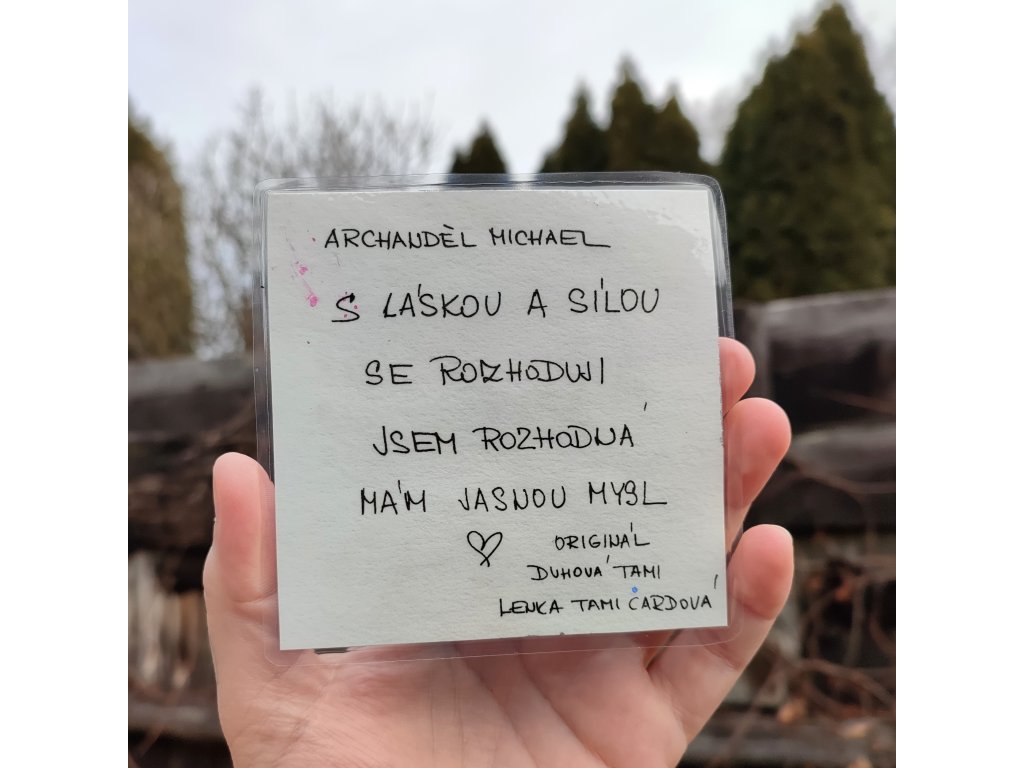 ARCHANDĚL MICHAEL
S LÁSKOU A SÍLOU
SE ROZHODUJI
JSEM ROZHODNÁ
MÁM JASNOU MYSL
ORIGINÁL
DUHOVÁ TAMI
LENKA TAMI ČARDOVÁ